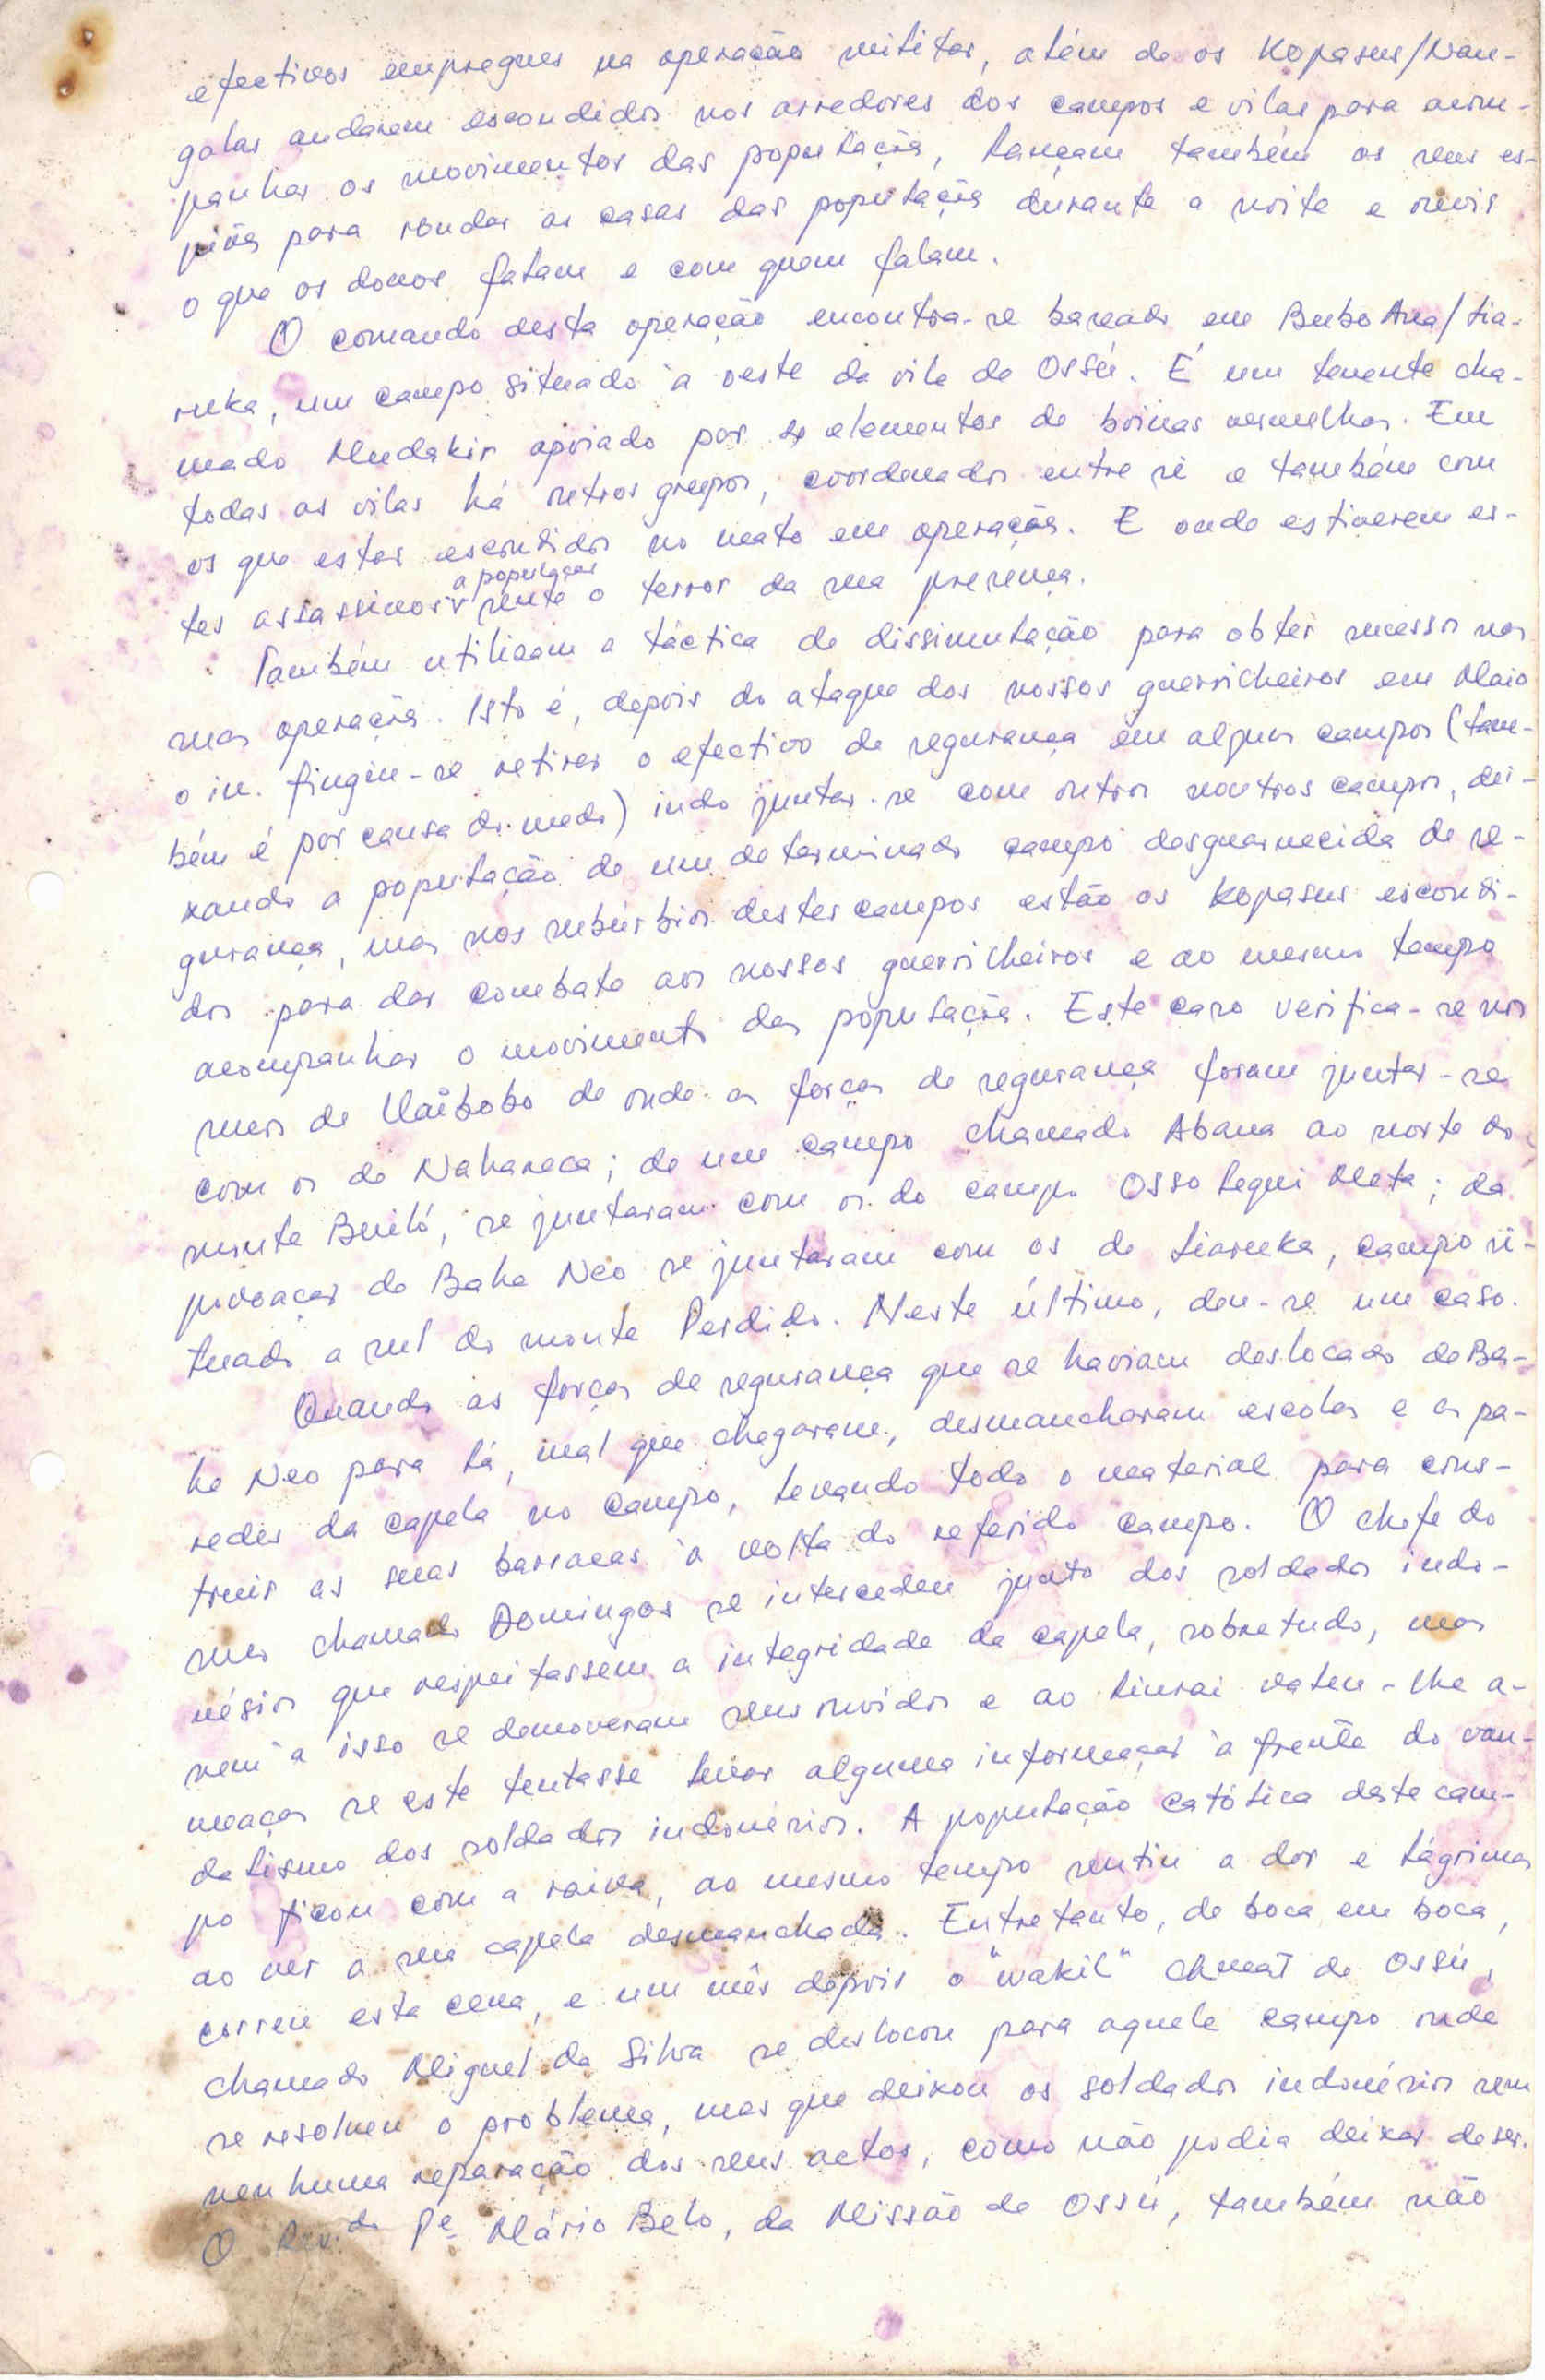 efectivos empregues na operação militar, além de os Kopasus/Nan-
galas andarem escondidos nos arredores dos campos e vilas para acom-
panhar os movimentos das populações, lançam também os seus es-
piões para rondar as casas das populações durante a noite e ouvir
o que os donos falam e com quem falam.
O comando desta operação encontra-se baseado em Bubo Ana/Lia-
ruka, um campo situado à oeste da vila de Ossú. É um tenente cha-
mado Mudakir apoiado por elementos de boinas vermelhas. Em
todas as vilas há outros grupos, coordenados entre si e também com
os que estão escondidos no mato em operações. E onde estiverem es-
tes assassinos a população sente o terror da sua presença.
Também utilizam a táctica de dissimulação para obter sucessos nas
suas operações. Isto é, depois do ataque dos nossos guerrilheiros em Maio
o in. fingiu-se retirar o efectivo de segurança em alguns campos (tam-
bém é por causa do medo) indo juntar-se com outros noutros campos, dei-
xando a população de um determinado campo desguarnecida de se-
gurança, mas nos subúrbios destes campos estão os Kopasus escondi-
dos para dar combate aos nossos guerrilheiros e ao mesmo tempo
acompanhar o movimento das populações. Este caso verifica-se nos
sucos de Uaibobo de onde as forças de segurança foram juntar-se
com os de Nahareca; de um campo chamado Abana ao norte do
monte Builó, se juntaram com os do campo Osso Legui Meta; da
povoação de Baha Neo se juntaram com os de Liaruka, campo si-
tuado a sul do monte Perdido. Neste último, deu-se um caso.
Quando as forças de segurança que se haviam deslocado de Ba-
ha Neo para lá, mal que chegaram, desmancharam escolas e as pa-
redes da capela no campo, levando todo o material para cons-
truir as suas barracas à volta do referido campo. O chefe do
suco chamado Domingos se intercedeu junto dos soldados indo-
nésios que respeitassem a integridade da capela, sobretudo, mas
nem a isso se demoveram seus ouvidos e ao liurai valeu-lhe a-
meaças se este tentasse levar alguma informação à frente do van-
dalismo dos soldados indonésios. A população católica deste cam-
po ficou com a raiva, ao mesmo tempo sentiu a dor e lágrimas
ao ver a sua capela desmanchada. Entretanto, de boca em boca,
correu esta cena, e um mês depois o "wakil" chmat de Ossú,
chamado Miguel da Silva se deslocou para aquele campo onde
se resolveu o problema, mas que deixou os soldados indonésios sem
nenhuma reparação dos seus actos, como não podia deixar de ser.
O Rev.do Pe. Mário Belo, da Missão de Ossú, também não